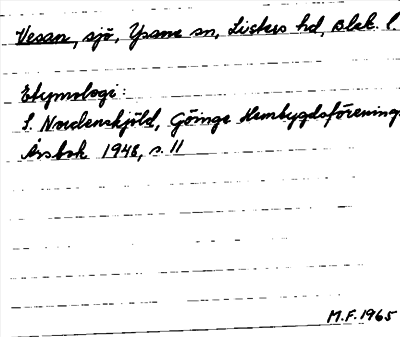 Vesan, sjö, Ysane sn, Listers hd, Blek. l.
Etymologi:
S. Nordenskjöld, Göinge Hembygdsförenings
Årsbok 1948, s. 11
M.F. 1965